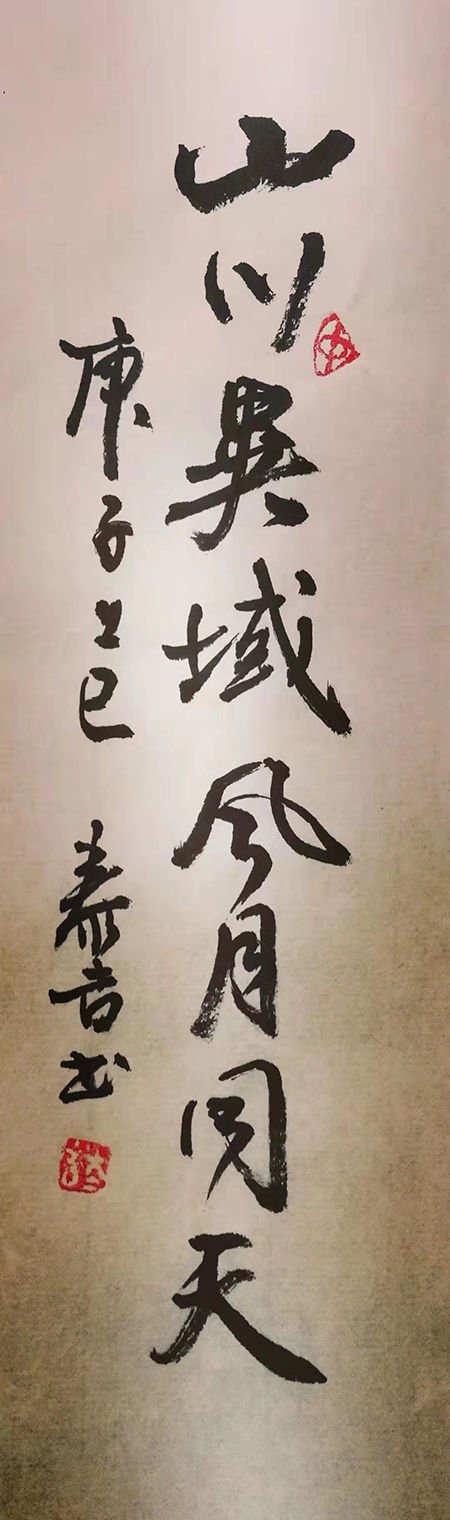 山川異域风月同天
庚子上巳 泰吉书